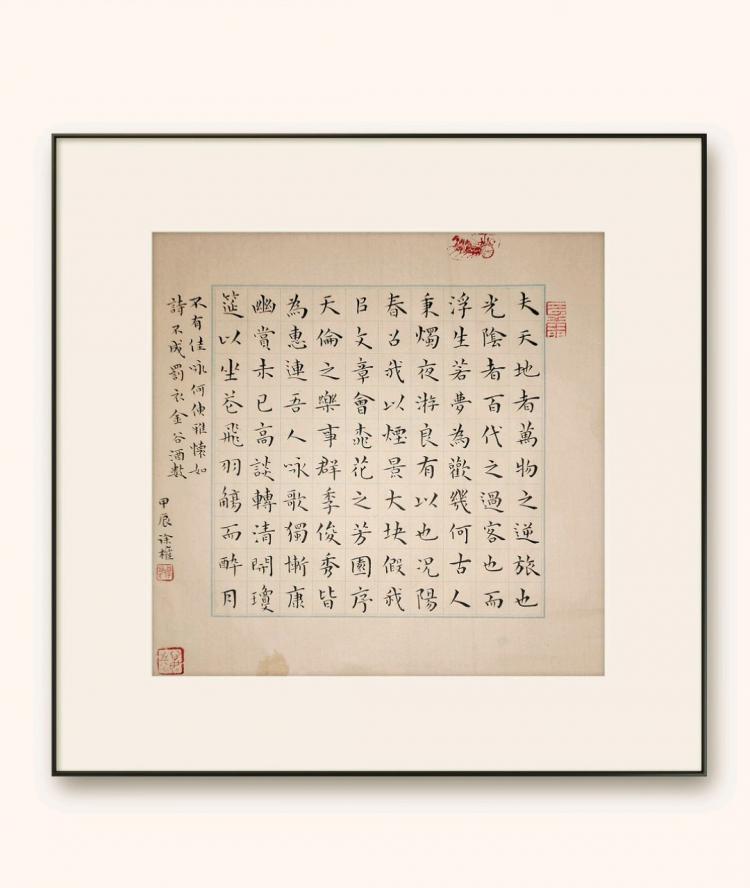 夫天地者萬物之逆旅也
光陰者百代之過客也而
浮生若夢為歡幾何古人
秉燭夜游良有以也況陽
春召我以煙景大块假我
㠯文章會桃花之芳園序
天倫之樂事群季俊秀皆
為惠連吾人咏歌獨慚康
幽賞未已高談轉清開瓊
筵以坐花飛羽觴而醉月
不有佳咏何伸雅懷如
詩不成罰依金谷酒數
甲辰 徐